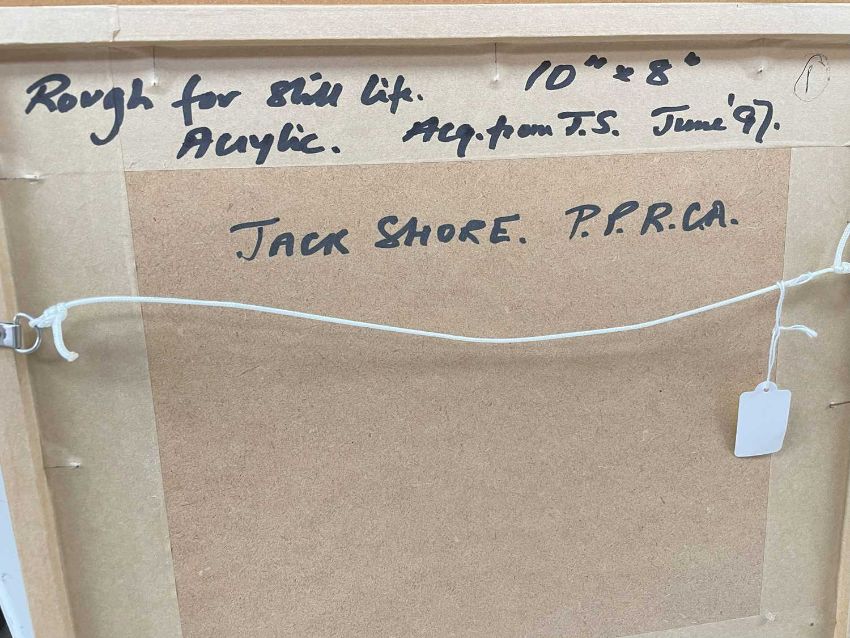 Rough for Still Life. 10" x 8"
Acrylic. Acq. from J.S. June '97.
JACK SHORE. P.P.R.C.A.